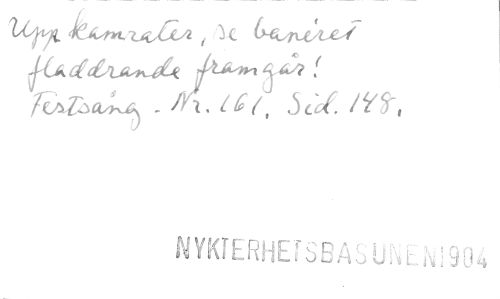 Upp kamrater, se banéret
fladdrande framgår!
Festsång - Nr. 161, Sid. 148.
NYKTERHETSBASUNEN1904